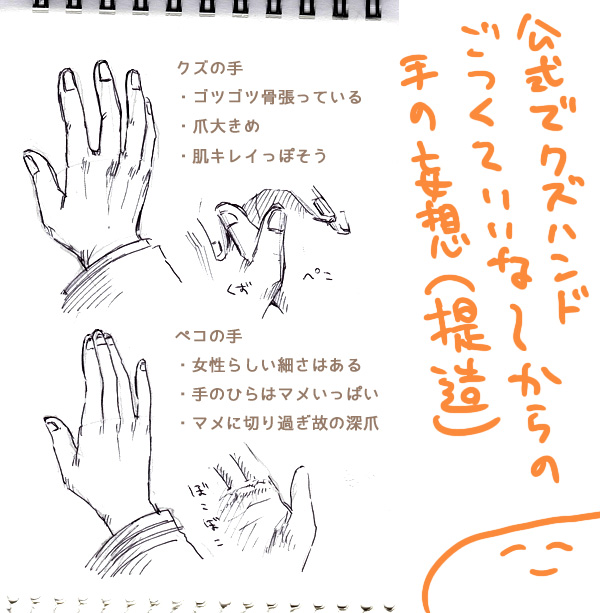 公式でクズハンド
ごつくていいね〜からの
手の妄想(捏造)
クズの手
・ゴツゴツ骨張っている
・爪大きめ
・肌キレイっぽそう
くず
ぺこ
ペコの手
・女性らしい細さはある
・手のひらはマメいっぱい
・マメに切り過ぎ故の深爪
ぼこ
ぼこ